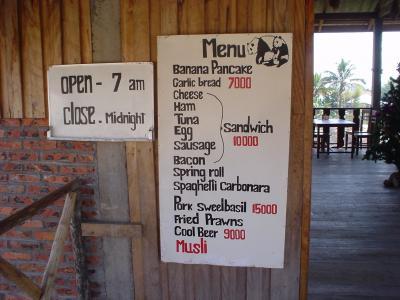 open - 7 am
close . Midnight
Menu
Banana Pancake
Garlic bread 7000
Cheese
Ham
Tuna
Egg
Sandwich
10000
Sausage
Bacon
Spring roll
Spaghetli Carbonara
Pork Sweelbasil 15000
Fried Prawns
Cool Beer 9000
Musli